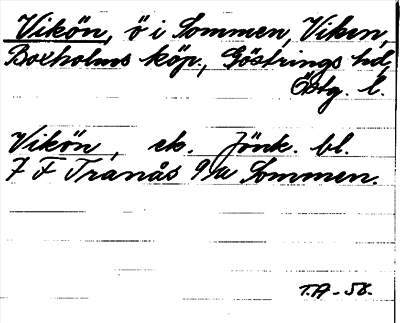 Vikön, ö i Sommen, Viken,
Boxholms köp., Göstrings hd,
Östg. l.
Vikön, ek. Jönk. bl.
7 F Tranås 9/a Sommen.
T.A - 58.